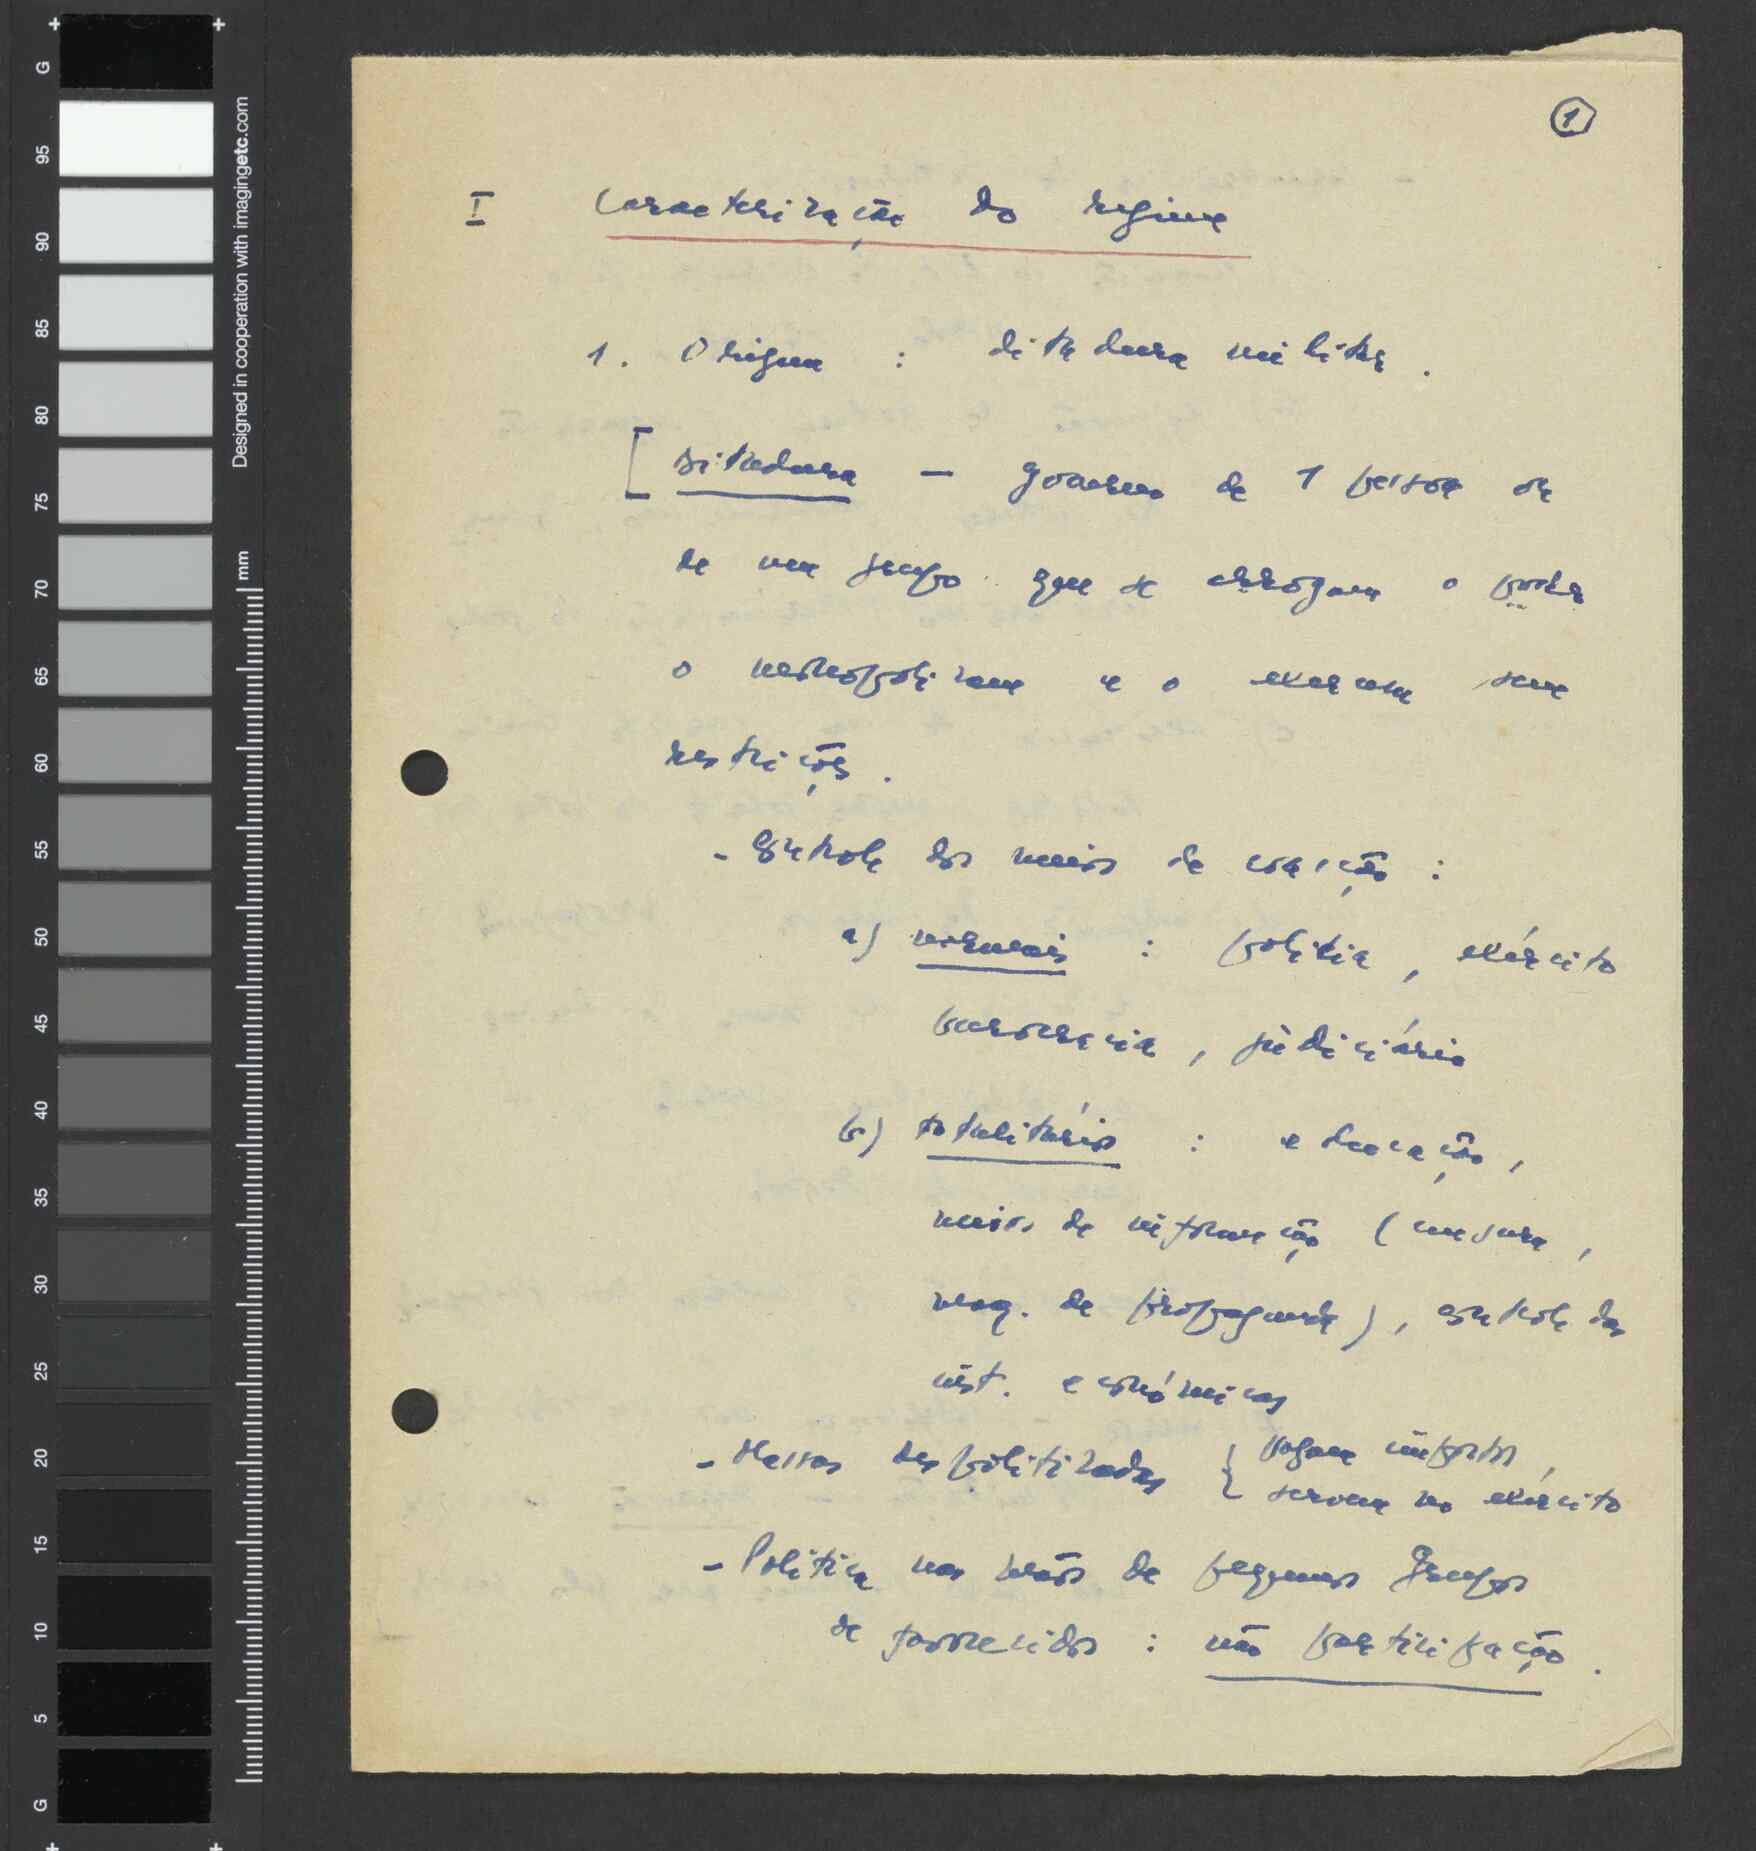 ①
I Caracterização do regime
1. Origem : ditadura militar.
[ Ditadura — governo de 1 pessoa ou
de um grupo que se arrogam o poder
o monopolizam e o exercem sem
restrições.
- Controle dos meios de coacção :
a) normais : polícia, exército
burocracia, judiciário
b) totalitários : educação,
meios de informação (censura,
maq. de propaganda), controle das
inst. económicas
- Massas despolitizadas { pagam impostos,
servem no exército
- Política nas mãos de pequenos grupos
de favorecidos : não participação.
G
95
90
85
80
75
70
65
60
55
50
45
40
35
30
25
20
15
10
5
G
Designed in cooperation with imagingetc.com
mm